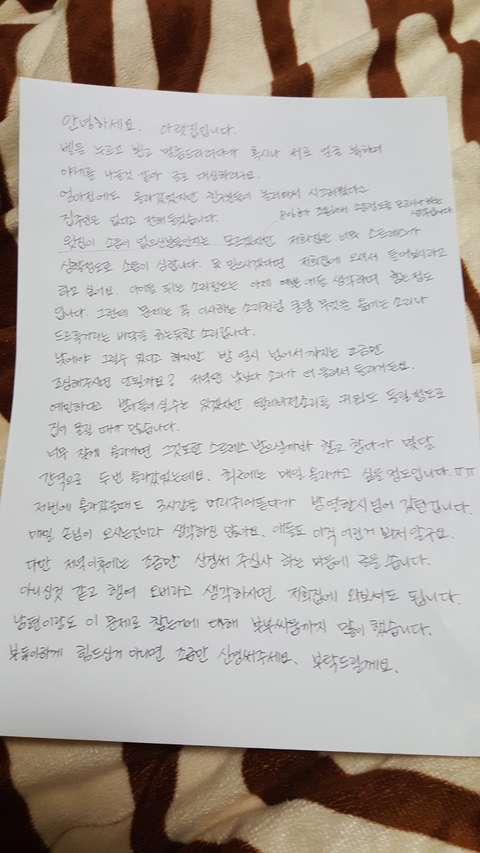 안녕하세요. 아랫집입니다.
벨을 누르고 뵙고 말씀드리려다가 혹시나 서로 얼굴 붉히며
얘기를 나눌것 같아 글로 대신하려구요.
얼마전에도 올라갔었지만 친구분들이 놀러와서 시끄러웠다고
집주인은 없다고 전해들었습니다.
윗집이 소음이 없으신분들인지는 모르겠지만 저희집은 너무 스트레스가
상당정도로 소음이 심합니다. 못 믿으시겠다면 저희집에 오셔서 들어보시라고
하고 싶어요. 아이들 뛰는 소리정도는 이제 예쁜 애들 생각하며 참는정도
입니다. 그런데 문제는 꼭 이사하는 소리처럼 쿵쿵 무엇을 옮기는 소리나
드르륵거리는 바닥을 긁는듯한 소리랍니다.
낮에야 그럴수 있다고 하지만 밤 열시 넘어서 까지는 조금만
조심해주시면 안될까요? 저녁엔 낮보다 소리가 더 울려서 들리거든요.
예민하다고 받아들이실수는 있겠지만 텔레비전소리를 키워도 들릴정도로
집이 울릴 때가 많습니다.
너무 잦게 올라가면 그것또한 스트레스 받으실까봐 참고 참다가 몇달
간격으로 두번 올라갔었는데요. 최근에는 매일 올라가고 싶을정도입니다. ㅠㅠ
저번에 올라갔을때도 3시간을 머리쥐어뜯다가 밤 열한시넘어 갔던겁니다.
매일 손님이 오시는것이라 생각하진 않아요. 애들도 이직 어린거 봐서 알구요.
다만 저녁이후에는 조금만 신경써 주십사 하는 마음에 글을 씁니다.
아니신것 같고 행여 오버라고 생각하시면 저희집에 와보셔도 됩니다.
남편이랑도 이 문제로 참는거에 대해 부부싸움까지 많이 했습니다.
부득이하게 힘드신거 아니면 조금만 신경써주세요. 부탁드릴게요.